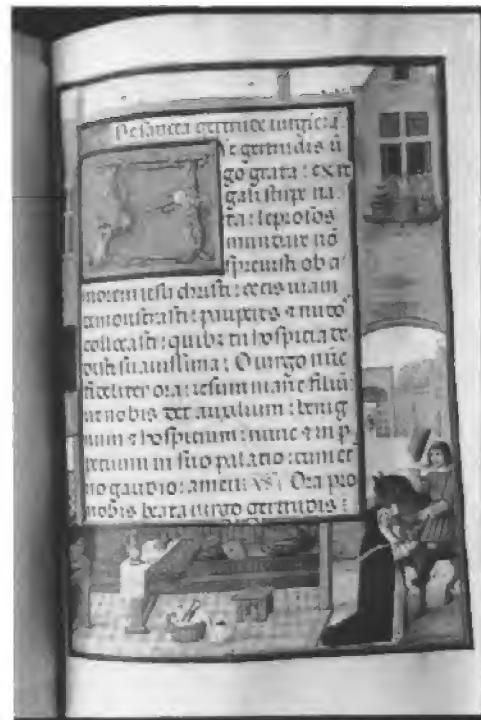 De sancta gertrude virgie: a.
e gertrudis ū
go grata: ex re
gali stirpe na
ta: leprosos
mundare nō
sprevisti ob a
morem iesu christi: cecis viam
demonstrasti: pauperes & nudos
collegasti: quibz tu hospicia de
disti suavissima: O virgo nūc
fideliter ora: iesum marie filiū
ut nobis det auxilium: benig
num & hospicium: nunc & in p
petuum in suo palatio: cum et
no gaudio: amen: vs: Ora pro
nobis beata virgo gertrudis: